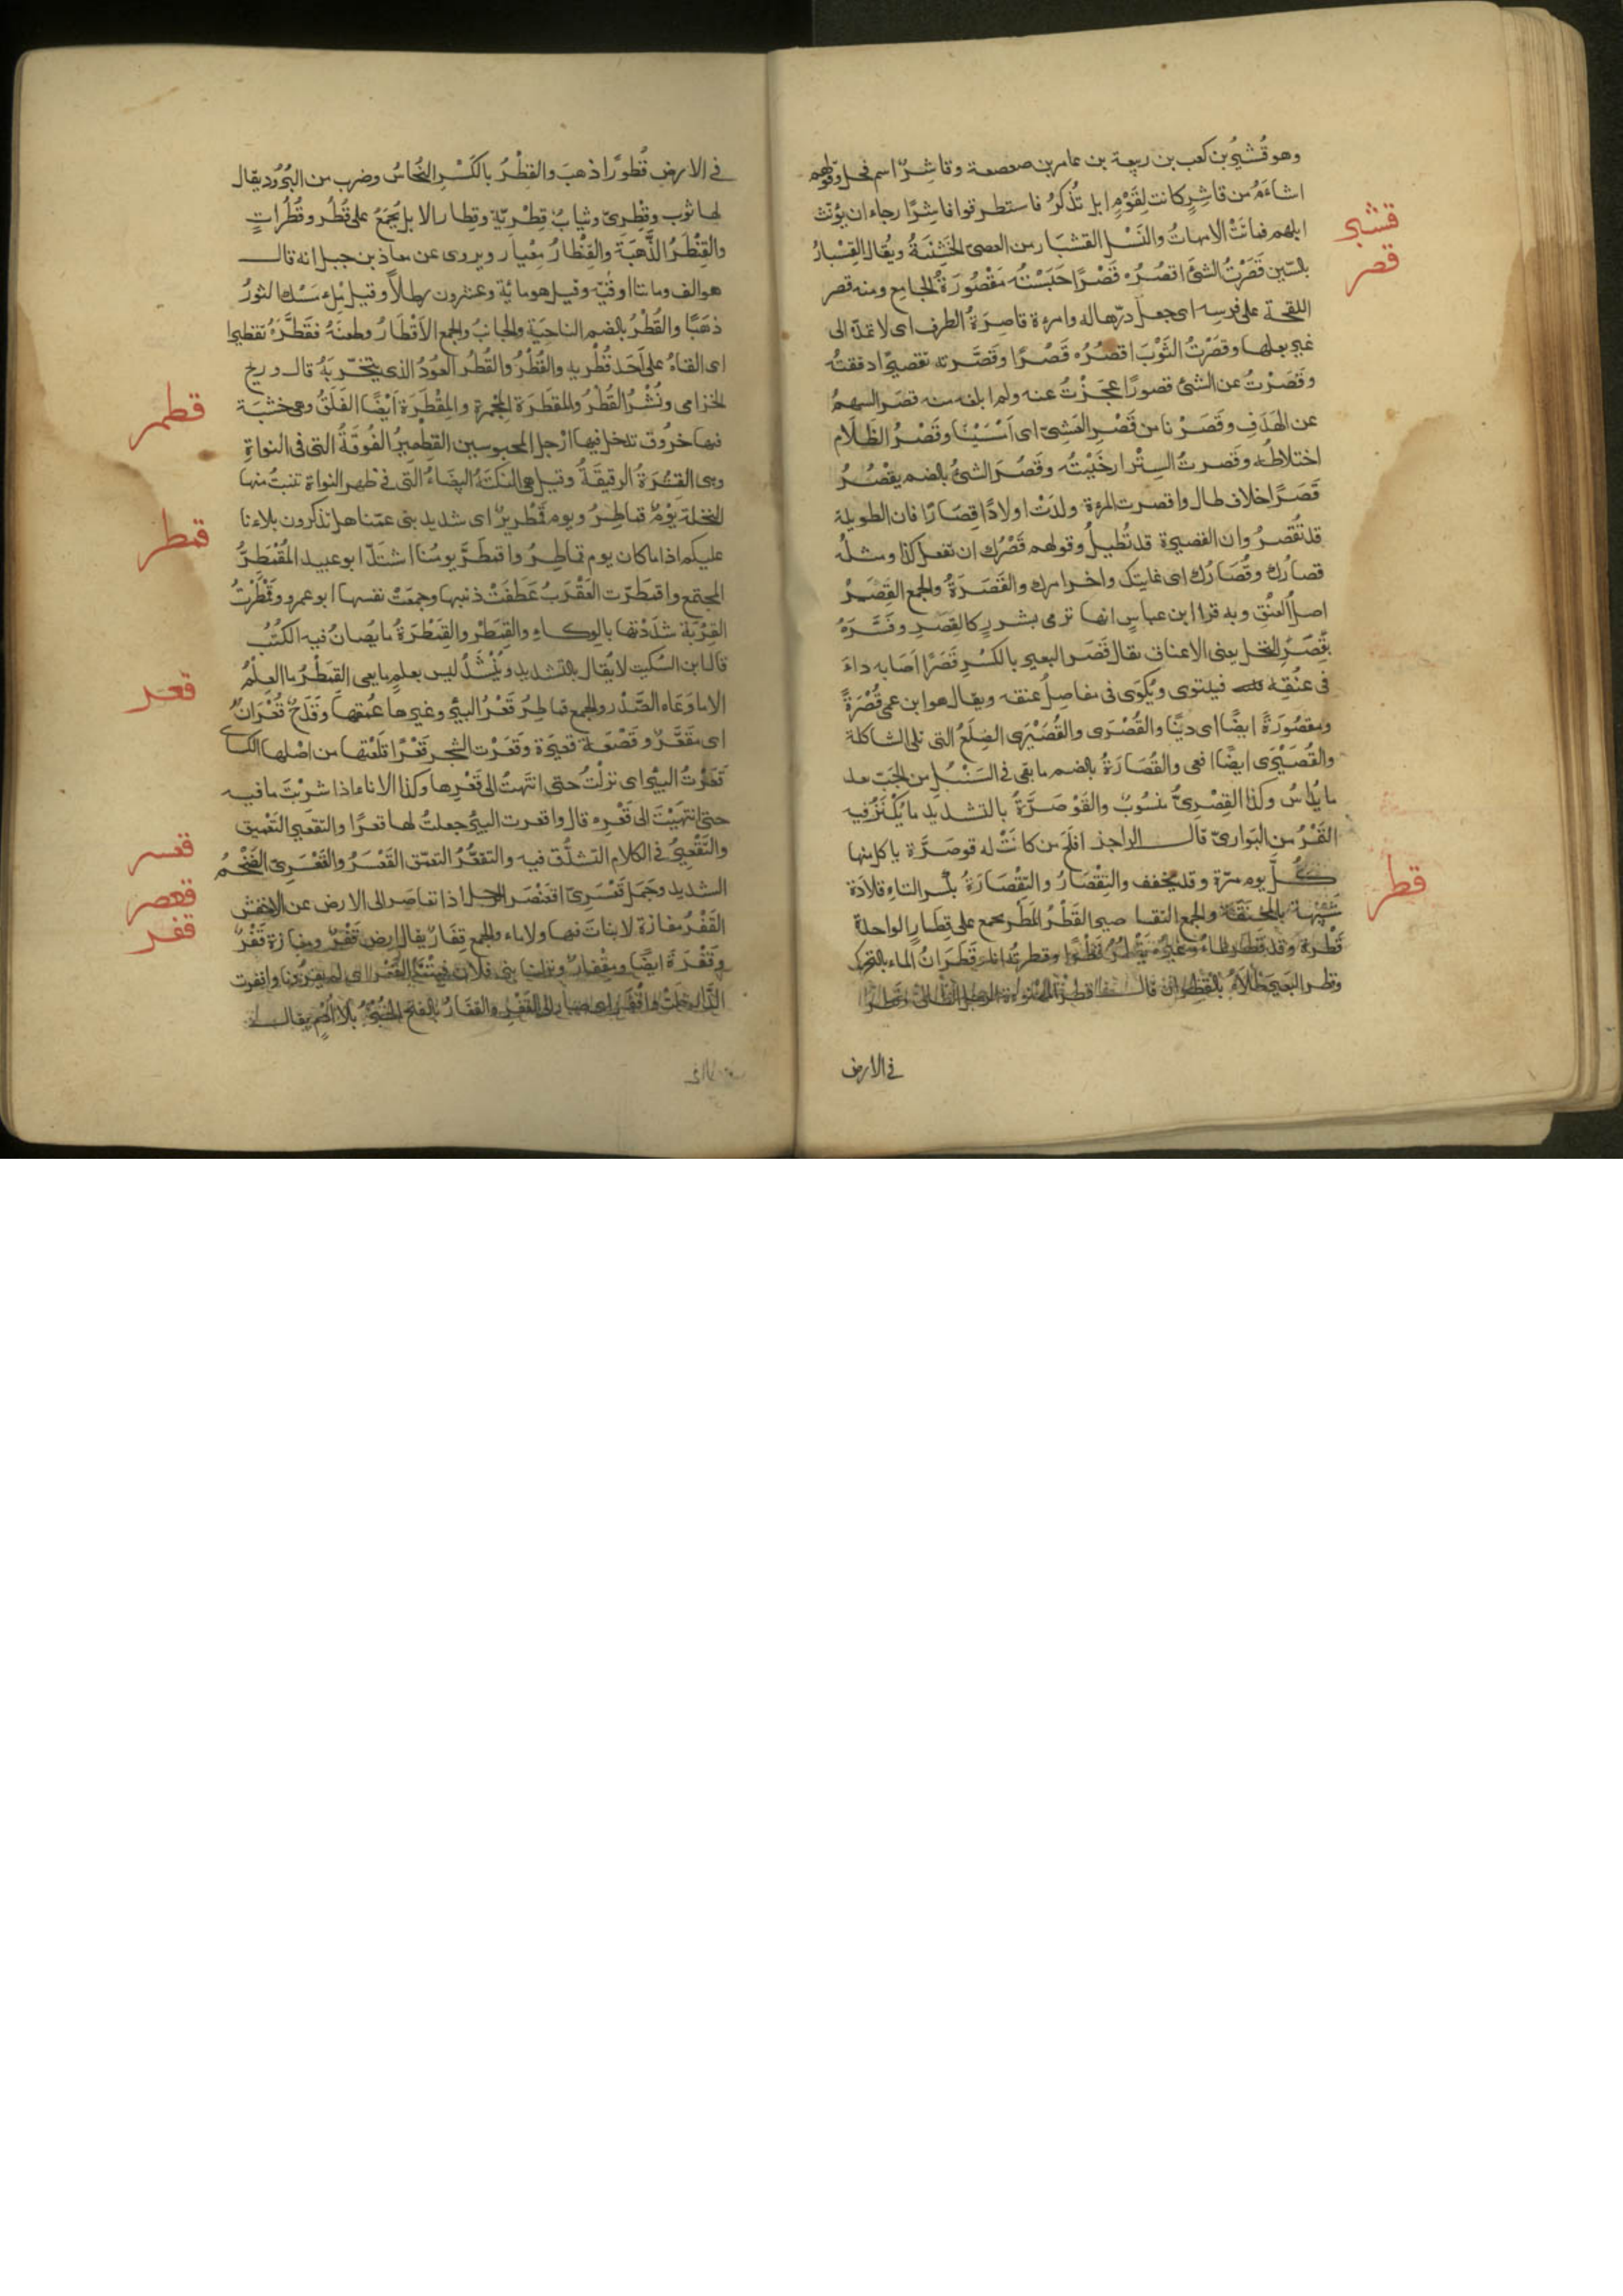 وهو قُشَيْرُ بن كعب بن ربيعة بن عامر بن صعصعة وقاشِرٌ اسم فحل وقولهم
اشاءَمُ من قاشِرٍ كانت لِقَوْمٍ ابل تُذْكِرُ فاستطرقوا قاشِرًا رجاء ان يؤنث
ابلهم فماتَتْ الامهاتُ والنَسْل القشبار من العصى الخَشِنَةُ ويُقال القِسْبارُ
قشبر
بالسّين قَصَرْتُ الشئَ اقصُرُه قَصْرًا حَبَسْتُه مَقْصُورَةُ الجامِع ومنه قصر
قصر
اللقحة على فرسه اى جعل درّها له وامرءة قاصِرَةُ الطرف اى لا تمدّه الى
غير بعلها وقصَرْتُ الثَوْبَ اقصُرُه قَصْرًا وقَصَّرته تقصيرًا دققتُه
وقَصَرْتُ عن الشئ قصورًا عجَزْتُ عنه ولم ابلغه منه قصَر السهمُ
عن الهَدَفِ وقَصَرْنا من قَصْرِ العَشِىّ اى اَمْسَيْنَا وقَصْرُ الظَلَام
اختلاطُه وقصرتُ السِتْر ارخَيْتُه وقَصُرَ الشئُ بالضم يقْصُرُ
قَصَرًا خلاف طال واقصرت المرءة ولدَتْ اولادًا قِصَارًا فان الطويلة
قد تُقصِرُ وان القصيرة قد تُطيلُ وقولهم قَصْرُك ان تفعل كذا ومثلُه
قصارُك وقُصَارُك اى غايتك واخر امرك والقَصَرَةُ والجمع القَصَرْ
اصلُ العنُق وبه قرا ابن عباس انها ترمى بشرر كالقصر وفسَّرَهُ
بقَصَرِ النخل يعنى الاعناق يقال قَصَر البعير بالكسْرِ قَصَرًا اصَابه داءَ
فى عنُقِه فيلتوى ويُكوَى فى مفاصِل عنقه ويقال هو ابن عمى قُصْرَةً
ومقصُورَةً ايضًا اى دِنيًا والقُصْرَى والقُصَيْرَى الضِلَعُ التى تلى الشاكلة
والقُصَيْرَى ايضًا افعى والقُصَارَةُ بالضم ما بقى فى السُنْبُل من الحَبّ بعد
ما يُداسُ وكذا القِصْرِىُّ منسُوبٌ والقَوْصَرَّةُ بالتشديد ما يُكْنَزُ فيه
التَمْرُ من البَوارىّ قال الراجز افلَحَ من كانَتْ له قوصَرَّة ياكل منها
كلَّ يوم مرّة وقد يخفف والتِقْصَارُ والتِقْصَارَةُ بكسر التاءِ قلادَة
شَبِيهة بالمخنَقَة والجمع التقاصير القَطْرُ المَطَر يجمع على قِطَار الواحدة
قطر
قَطْرة وقد قَطَر الماءُ وغيرُه يَقْطُرُ قَطْرًا وقطرتُه انا وقَطَرَانُ الماء بالتحرك
وقطر البَعيرَ طَلاَهُ بالقطران قال
فى الارض
فى الارض قُطورًا ذهبَ والقِطْرُ بالكَسْرِ النُحَاسُ وضرب من البُرُود يقال
لها ثوب وقِطْرِىّ وثيابٌ قِطْريّة وقِطار الابل يُجمَعُ على قُطُر وقُطُرَاتٍ
والقِنْطَارُ مِعْيار ويروى عن معاذ بن جبل انه قال
هو الف وماتا اوقيّة وقيل هو مائة وعشرون رطلاً وقيل مِلءُ مَسْك الثورُ
ذهَبًا والقُطْرُ بالضم الناحِيَة والجانبُ والجمع الاَقْطَارُ وطعنَهُ فقَطَّرَهُ تقطيرا
اى القاهُ على اَحَد قُطْرَيه والقُطْرُ والقُطُر العُودُ الذى يتبخّر بَهُ قال وريح
الخزامى ونُشْرُ القُطُرْ والمِقطَرَة المِجْمَرة والمِقْطَرَة اَيْضًا الفَلَقُ وهى خشبَة
قطمر
فيها خرُوق تدخل فيها ارْجل المحبوسين القِطْمِيرُ الفُوفَةُ التى فى النواةِ
وهى القِشْرَةُ الرقيقَةُ وقيل هى النكتَةُ البيضَاءُ التى فى ظهر النواة تنبتُ منها
النخلة يَوْمٌ قماطِرُ ويوم قَمْطَرِيرٌ اى شديد بنى عمّنا هل تذكرون بلاءنا
قمطر
عليكم اذا ما كان يوم قماطِرُ واقمطَرَّ يومُنا اشتدّ ابو عبيد المُقْمَطِرُّ
المجتمع واقمَطَرّت العَقْرَبُ عَطَفَتْ ذنبها وجمعَتْ نفسها ابو عمرو وقَمْطَرْتُ
القِرْبَة شدَدْتها بالوِكاءِ والقِمَطْر والقِمَطْرَةُ ما يُصانُ فيه الكتُبُ
قال ابن السِّكيت لا يُقال بالتشديد ويُنْشَدُ ليس بعلمٍ ما يعى القِمَطْرُ ما العِلْمُ
الا ما وَعَاه الصَّدْر والجمع قماطِرُ قَعْرُ البئرِ وغيرها عُمقها وقَدَحٌ قَعْرَانُ
قعر
اى مقَعَّرٌ وقَصْعَة قعيرَة وقَعَرْت الشجر قَعْرًا قلَعْتها من اصْلها الكسائى
قَعَرْتُ البئر اى نزلْتُ حتى انتَهيتُ الى قَعْرِها وكذا الاناء اذا شربْتَ ما فيه
حتى انتَهيْتَ الى قَعْرِه قال واقعرت البئرَ جعلتُ لها قعرًا والتقعير التعميق
والتَقْعِيرُ فى الكلام التشدُّق فيه والتقعُّرُ التعمّق القَعْسَرُ والقَعْسَرِىّ الضخْمُ
قعسر
الشديد وجَمَل قَعْسَرِىّ اقعَنْصَرَ الرجل اذا تقاصَر الى الارض عن الاخفش
قعصر
القَفْرُ مفازَة لا نباتَ فيها ولا ماء والجمع قِفَارٌ يقال ارض قَفْرٌ ومفازة قَفْرٌ
قفر
وقَفْرَة ايضًا ومِقْفارٌ ونزلنا ببنى فلان فبِتْنَا القَفْرَ اى لم يقرُونا واقفرت
الدّار خلَتْ واَقْفَرَ اى صار الى القَفْرِ والقفَارُ بالفتح الخُبْزُ بلا اُدْمٍ يقال